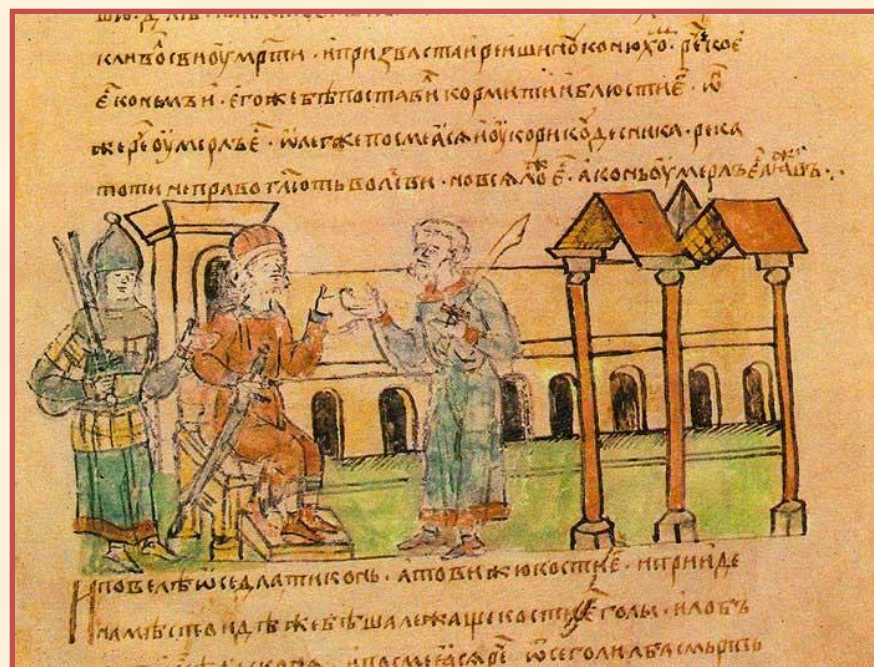 ѿ бг҃а своⷷ оумрѣти · и призва старѣишинѹ конюхоⷨ · рⷱе кое
е҃ конь мъи · егоже бѣ поставиⷧ кормити и блюсти е҃ · ѡⷩ
же рⷱе оумерлъ е҃ · ѡлег же посмеꙗсѧ и оукори кудесника · река
тоти неправо гл҃ють волъсви · но всѧ ложь е҃ · а конь оумерлъ е҃ а ꙗ живъ :·
И повелѣ ѡседлати конь · а то вижю кости е҃ · и прииде
на мѣсто идѣже бѣша лежаще кости е҃ голы · и лобъ
с конѧ · и посмеꙗсѧ рⷱе ѿ сего ли лъба смьрть